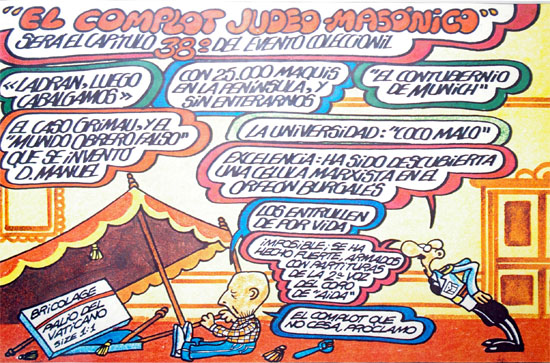 "EL COMPLOT JUDEO-MASÓNICO"
SERA EL CAPITULO 38º DEL EVENTO COLECCIONIL
«LADRAN, LUEGO
CABALGAMOS»
CON 25.000 MAQUIS
EN LA PENINSULA, Y
SIN ENTERARNOS
"EL CONTUBERNIO
DE MUNICH"
EL CASO GRIMAU, Y EL
"MUNDO OBRERO FALSO"
QUE SE INVENTO
D. MANUEL
LA UNIVERSIDAD: "COCO MALO"
EXCELENCIA: HA SIDO DESCUBIERTA
UNA CELULA MARXISTA EN EL
ORFEON BURGALES
LOS ENTRULLEN
DE POR VIDA
IMPOSIBLE; SE HA
HECHO FUERTE, ARMADOS
CON PARTITURAS
DE LA SALIDA
DEL CORO
DE "AIDA"
EL COMPLOT QUE
NO CESA, PROCLAMO
BRICOLAGE
PALIO DEL
VATICANO
SIZE 1:1